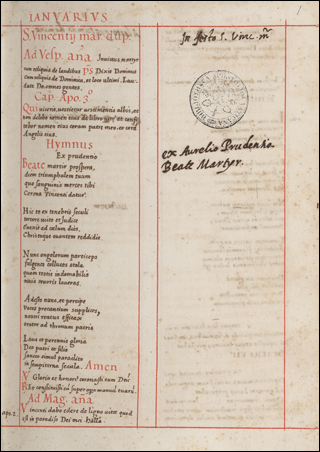 IANVARIVS
1
S. Vincentij mar. dup.
Ad Vesp. ana Inuictus martyr
cum reliquis de laudibus ps Dixit Dominus
cum reliquis de Dominica, et loco ultimi. Lau-
date Dm omnes gentes.
Cap. Apo. 3º
Qui uicerit, uestietur uestimentis albis, et
non delebo nomen eius de libro uitę et confi-
tebor nomen eius coram patre meo, et corã
Angelis eius.
Hymnus
Ex prudentio
Beate martyr prospera,
diem triumphalem tuum
quo sanguinis merces tibi
Corona Vincenti datur.
Hic te ex tenebris seculi
tortore uicto et Judice
euexit ad celum dies,
Christoque ouantem reddidit.
Nunc angelorum particeps
fulgenti collucens stola,
quam testis indomabilis
riuis cruoris laueras.
Adesto nunc, et percipe
voces precantum supplices,
nostri reatus efficax
orator ad thronum patris
Laus et perennis gloria
Deo patri et filio
sancto simul paraclito
in sempiterna secula. Amen
V Gloria et honore coronasti eum Dñe
R Et constituisti eũ super opera manuũ tuarũ.
Ad Mag. ana
apo. 2. Vincenti dabo edere de ligno uitę quod
est in paradiso Dei mei. halla.
In festo S. Vinc. m̃
ex Aurelio Prudentio.
Beate Martyr.